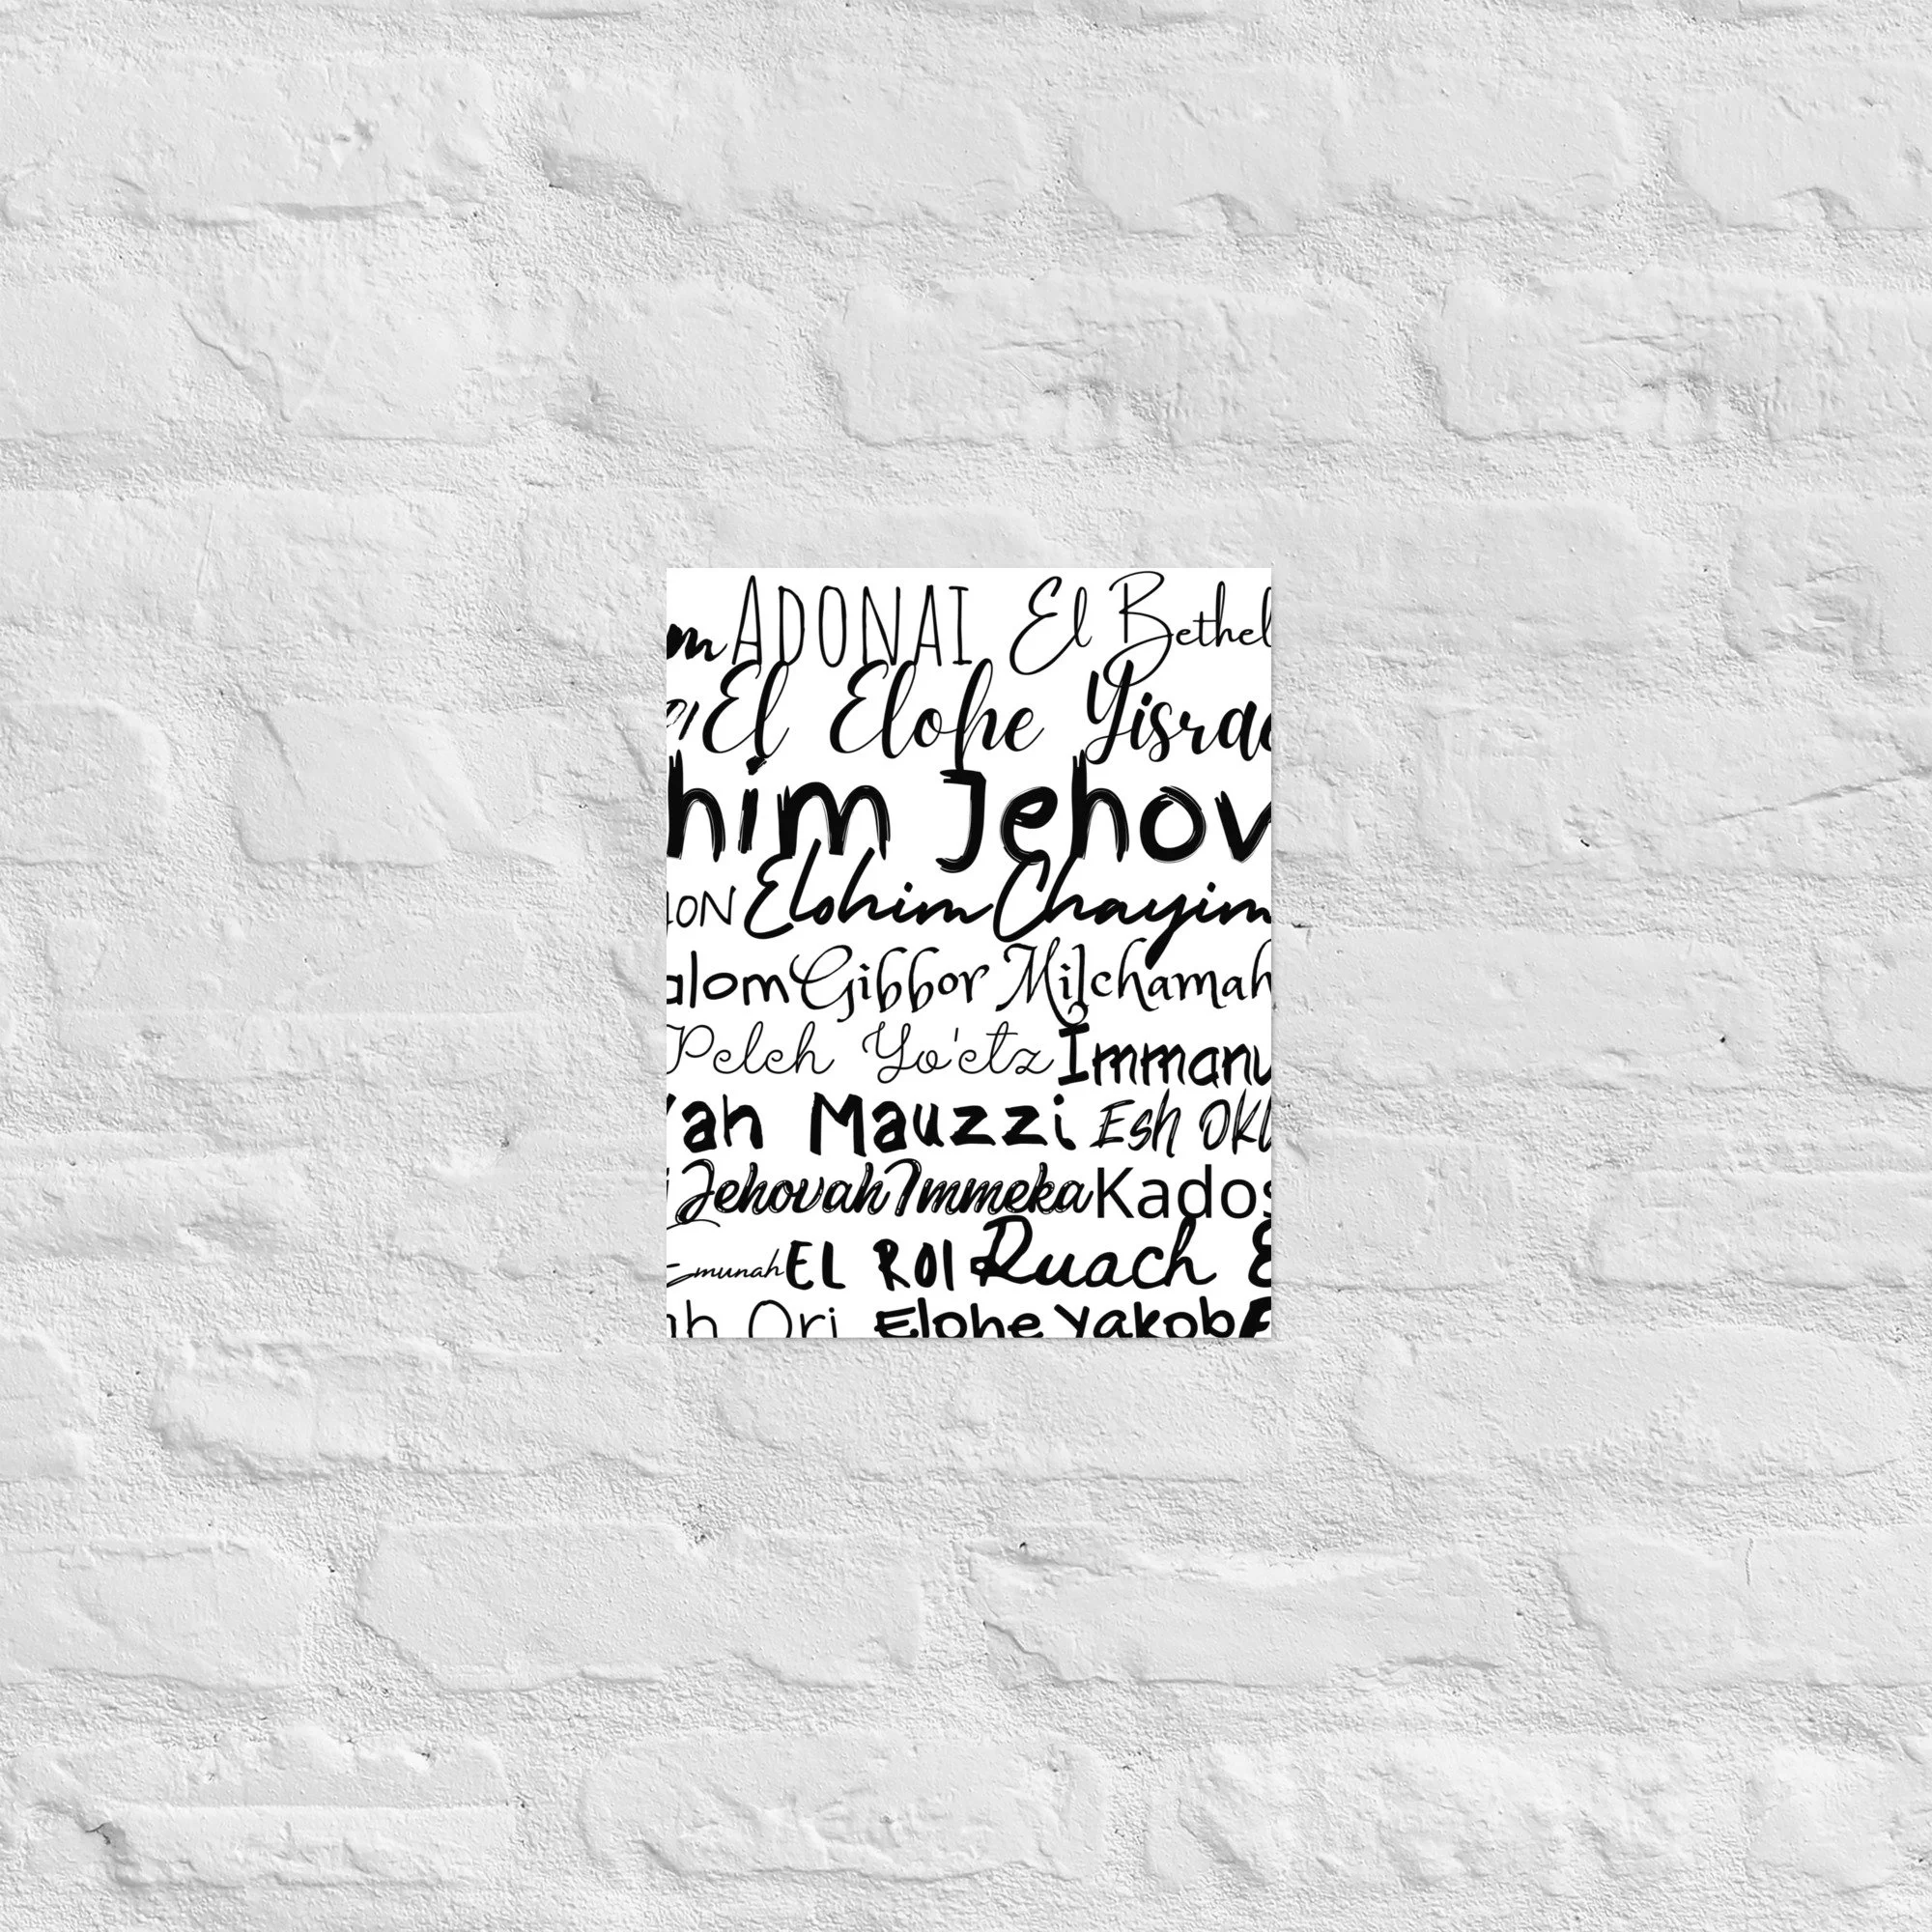 m ADONAI El Bethel
El Elohe Yisrae
him Jehov
ION Elohim Chayim
alom Gibbor Milchamah
Peleh Yo'etz Immanu
Yah Mauzzi Esh Okl
Jehovah Immeka Kados
Emunah EL ROI Ruach E
ah Ori Elohe Yakob